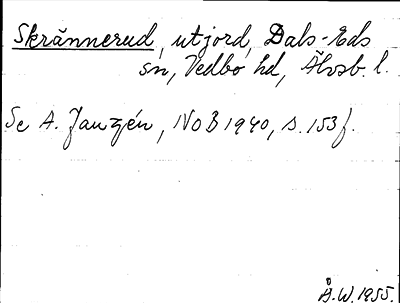 Skrännerud, utjord, Dals-Eds
sn, Vedbo hd, Älvsb. l.
Se A. Janzén, NoB 1940, s. 153 f.
Å.W. 1955.